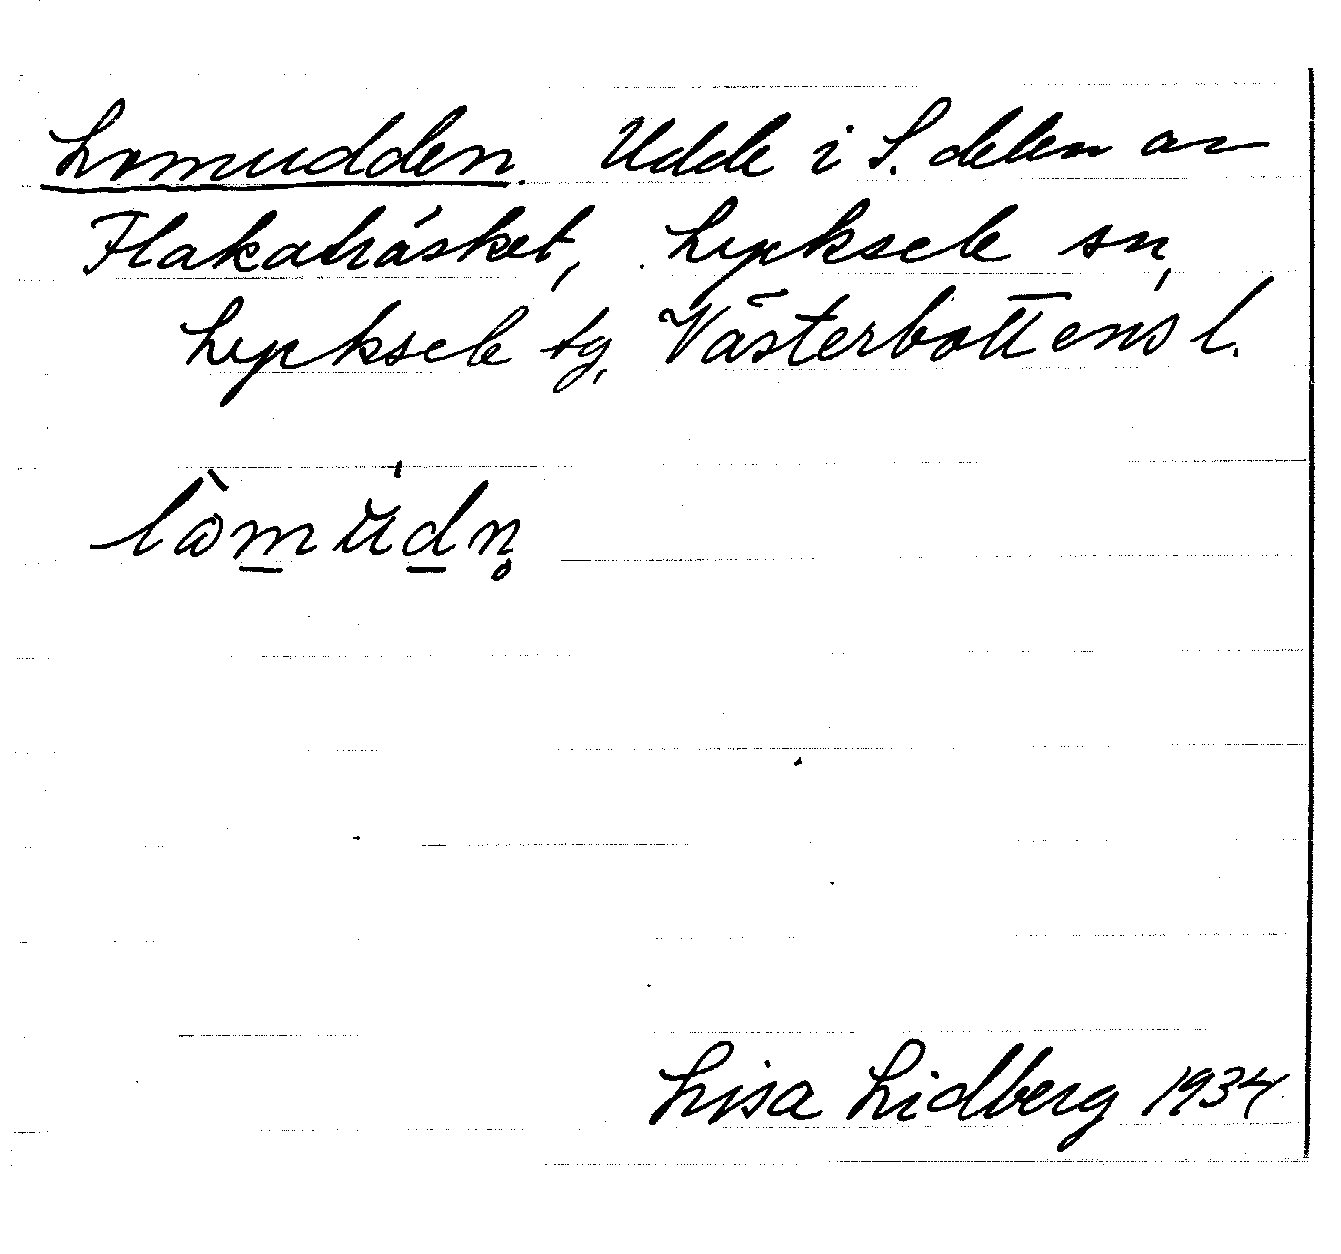 Lomudden. Udde i S. delen av
Flakaträsket, Lycksele sn,
Lycksele tg, Västerbottens l.
Lisa Lidberg 1934